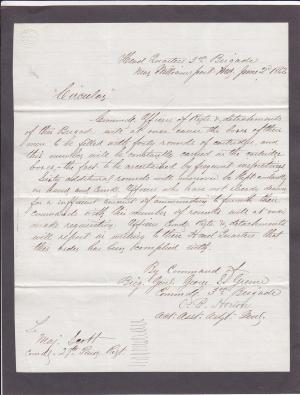 Head Quarters 3rd Brigade
Near Williamsport Md. June 2d 1862
"Circular"
Commdg. Officers of Regts & detachments
of this Brigade will at once cause the boxes of their
men to be filled with forty rounds of cartridges and
this number will be constantly carried in the cartridge
boxes - the fact to be ascertained by frequent inspections.
Sixty additional rounds will be kept constantly
on hand and Comdg Officers who have not already drawn
for a sufficient amount of ammunition to furnish their
commands with this number of rounds will at once
make requisition. Officers Comdg Regts & detachments
will report in writing to these Head Quarters that
this order has been complied with.
By Command of
Brig. Genl. George S. Greene
Commdg 3rd Brigade
C. P. Horton
Act. Asst. Adjt. Genl.
To
Maj. Scott
Comdg. 29th Penn Regt.